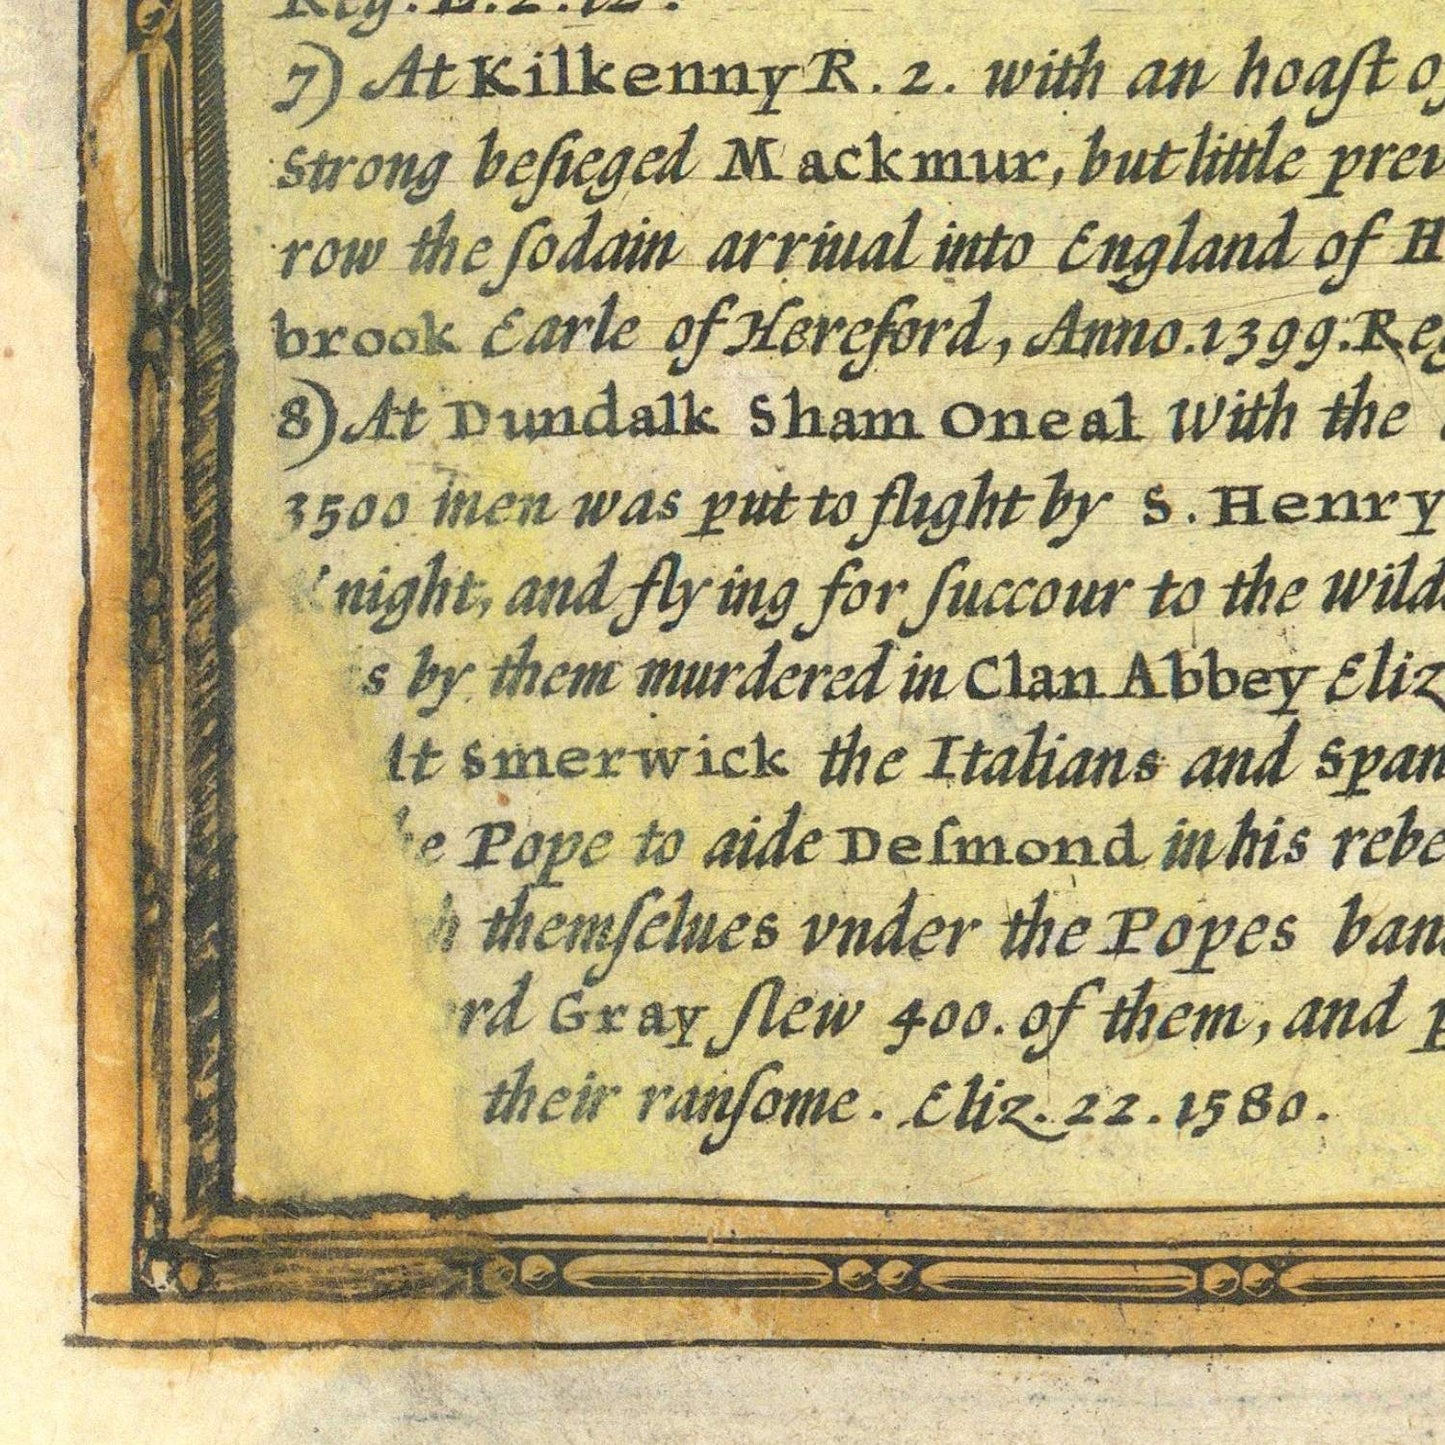 7) At Kilkenny R. 2. with an hoaſt
Strong beſieged Mackmur, but little
row the ſodain arriual into England of
brook Earle of Hereford, Anno. 1399.
8) At Dundalk Sham Oneal with the
3500 men was put to flight by S. Henry
Knight, and flying for ſuccour to the
by them murdered in Clan Abbey Eliz
At Smerwick the Italians and
Pope to aide Deſmond in his
themſelues vnder the Popes
Gray ſlew 400. of them, and
their ranſome. Eliz. 22. 1580.